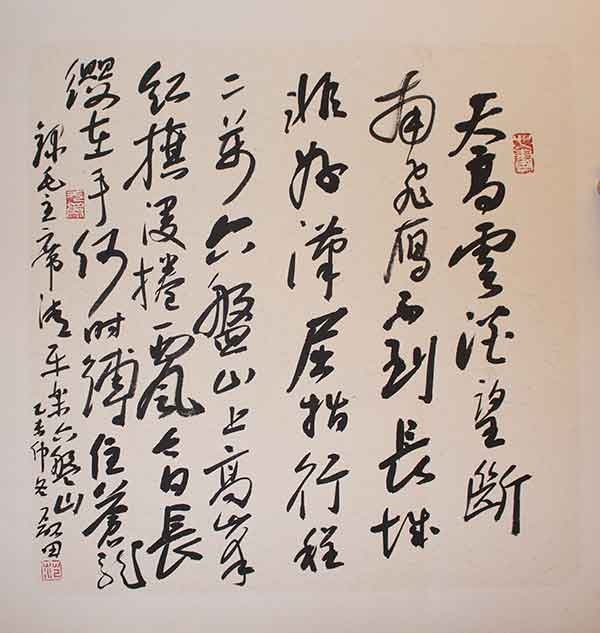 天高雲淡望斷
南飛雁不到長城
非好漢屈指行程
二萬六盤山上高峯
紅旗漫捲西風今日長
纓在手何時縛住蒼龍
錄毛主席清平樂六盤山
乙亥仲冬 田